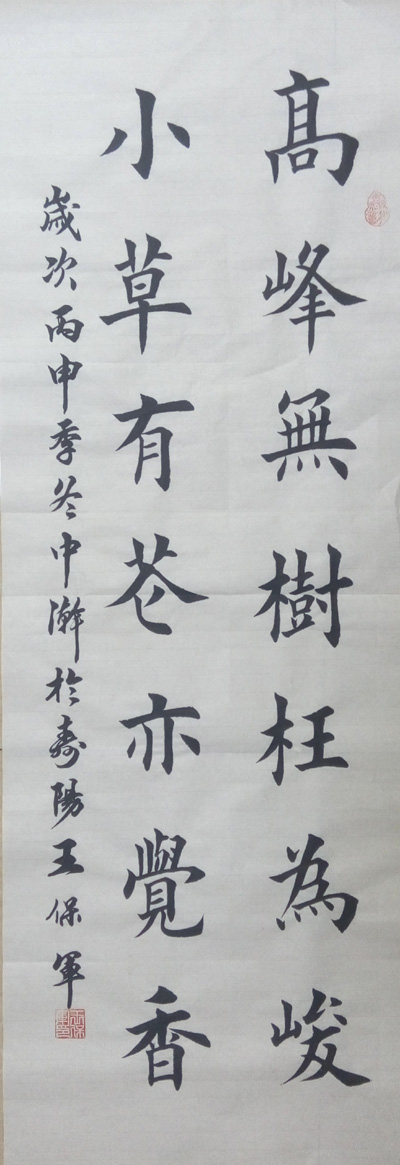 高峰無樹枉為峻
小草有花亦覺香
歲次丙申季冬中澣於壽陽王保軍